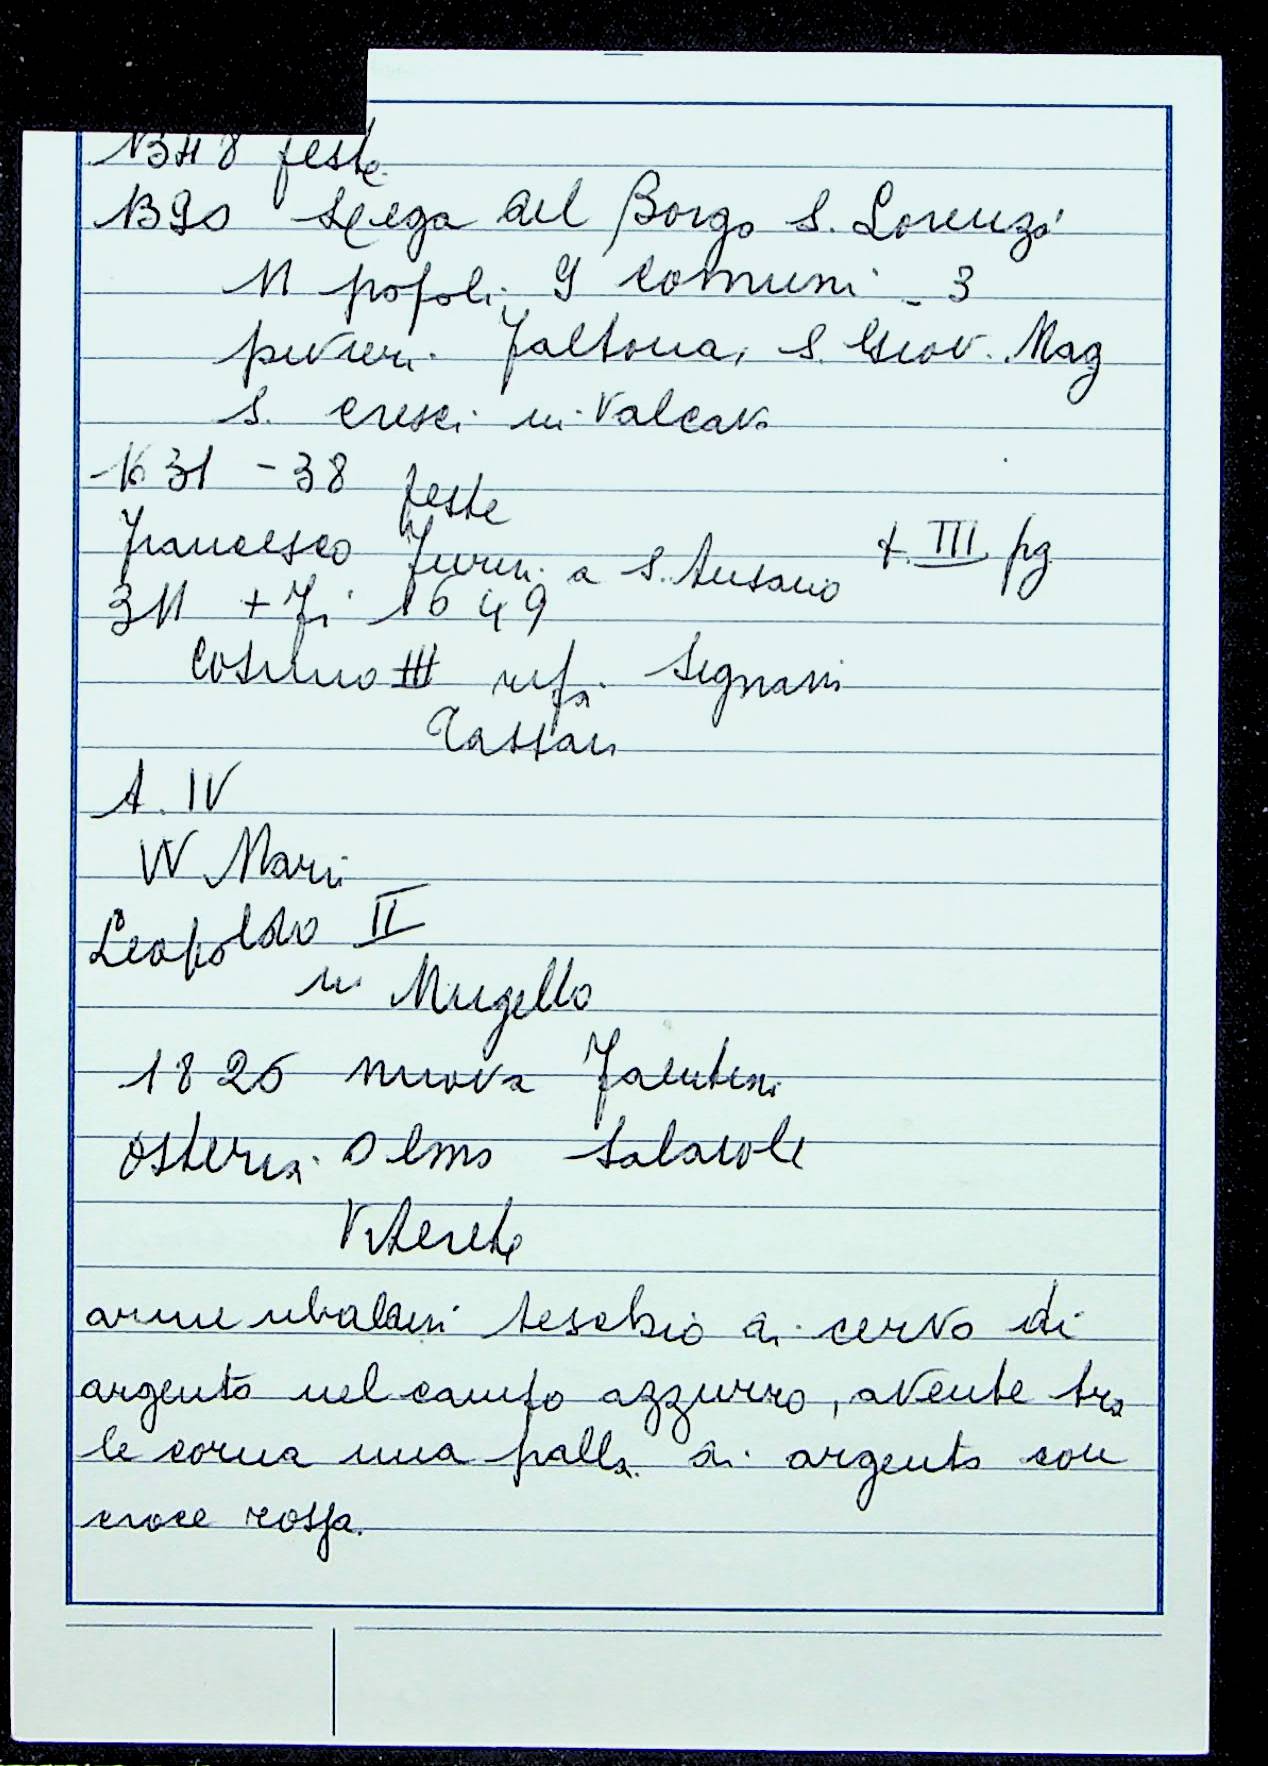 feste
Lega del Borgo S. Lorenzo
popoli 9 comuni - 3
pivieri Faltona, S. Giov. Mag
S. Cresci in Valcava
1631 - 38 feste
Francesco Furini a S. Ansano t. III pg
311 + Fi 1649
Cosimo III rifà Signani
A. IV
W Mari
Leopoldo II
in Mugello
1826 nuova Faentina
osteria Olmo Salaiole
Viterete
arme ubaldini teschio di cervo di
argento nel campo azzurro, avente tra
le corna una palla di argento con
croce rossa.